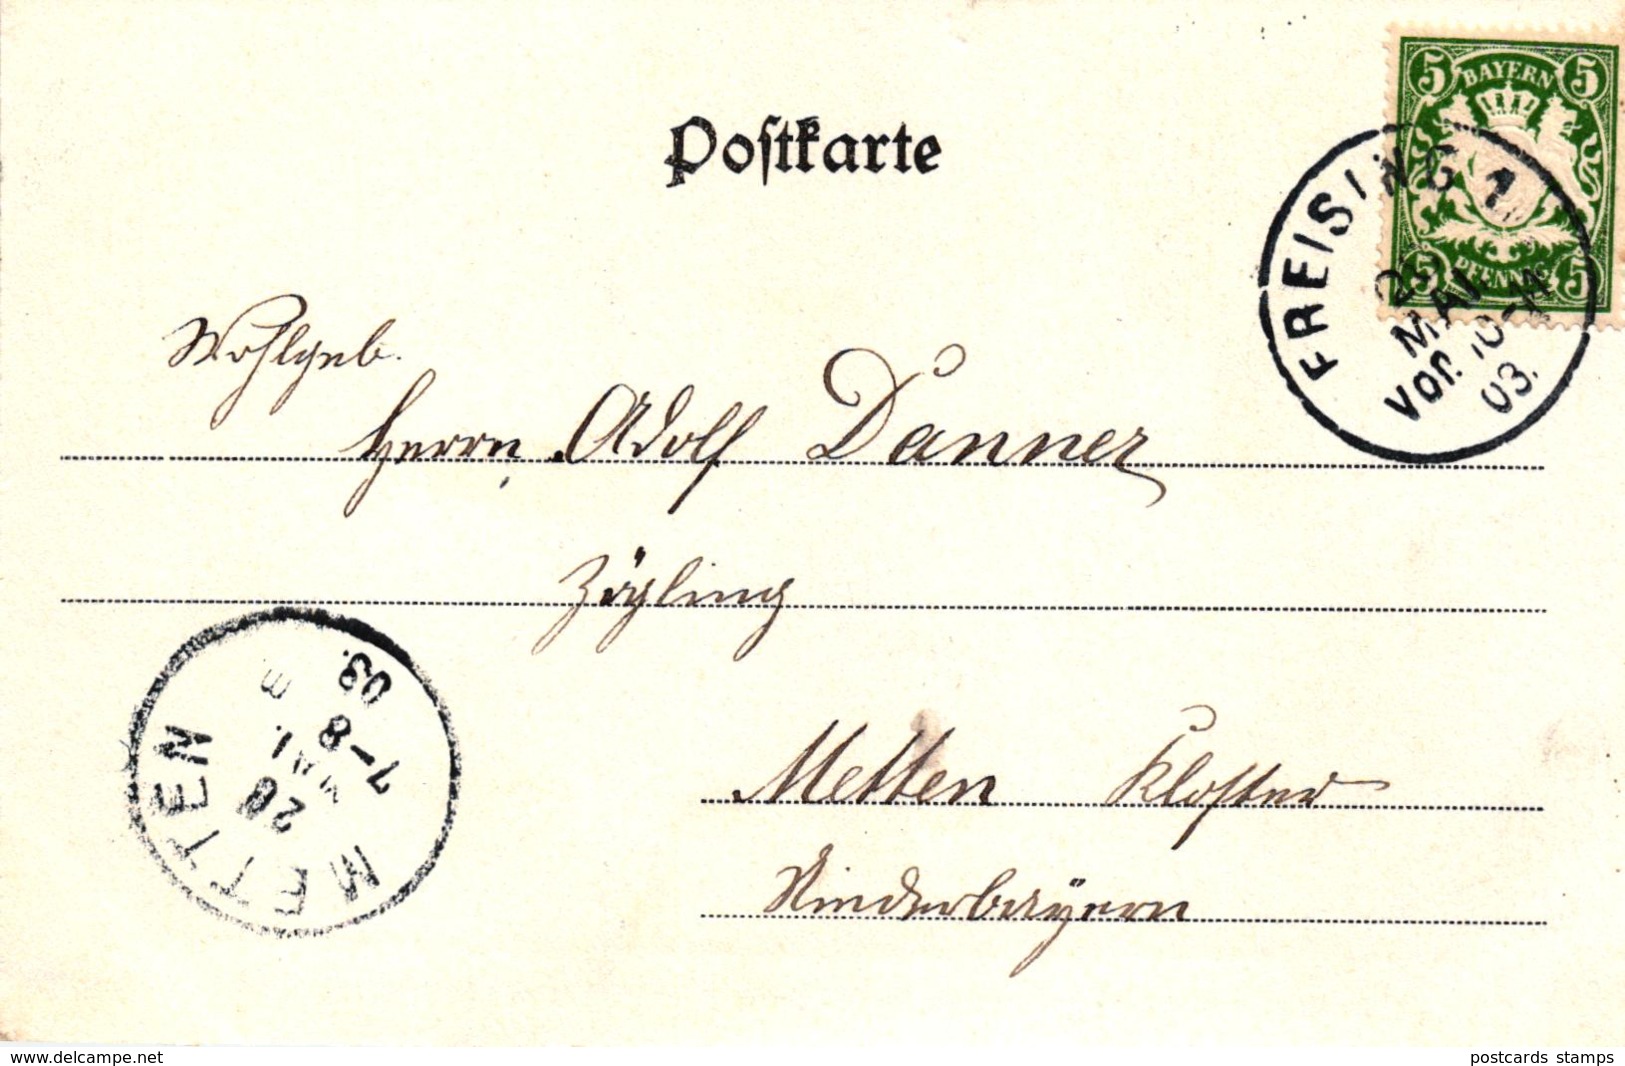 Postkarte
5 BAYERN 5
5 PFENNIG 5
FREISING 1
MAI
Vor. 10-11
03.
Wohlgeb.
Herrn Adolf Danner
Zögling
Metten Kloster
Niederbayern
METTEN
28
MAI.
7-8
03.
www.delcampe.net
postcards stamps